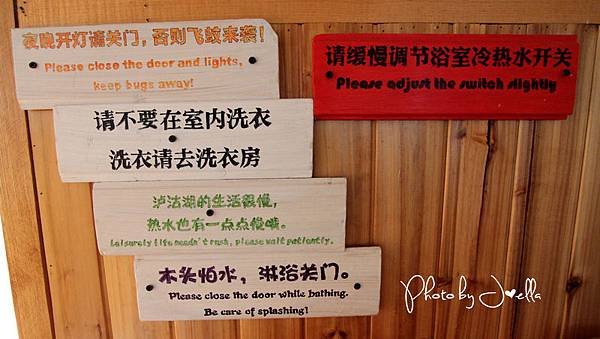 夜晚开灯请关门，否则飞蚊来袭！
Please close the door and lights,
keep bugs away!
请不要在室内洗衣
洗衣请去洗衣房
泸沽湖的生活很慢，
热水也有一点点慢哦。
Leisurely life needn't rush, please wait patiently.
木头怕水，淋浴关门。
Please close the door while bathing.
Be care of splashing!
请缓慢调节浴室冷热水开关
Please adjust the switch slightly
Photo by Joella